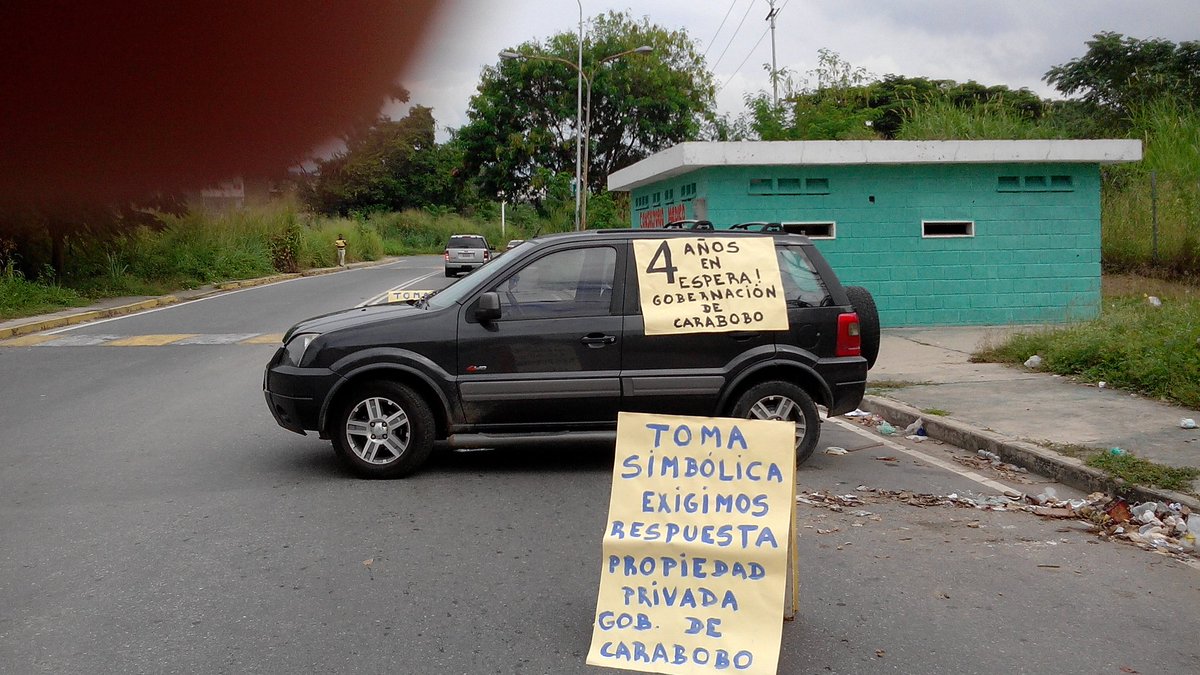 4 AÑOS
EN
ESPERA!
GOBERNACIÓN
DE
CARABOBO
TOMA
TOMA
SIMBÓLICA
EXIGIMOS
RESPUESTA
PROPIEDAD
PRIVADA
GOB. DE
CARABOBO